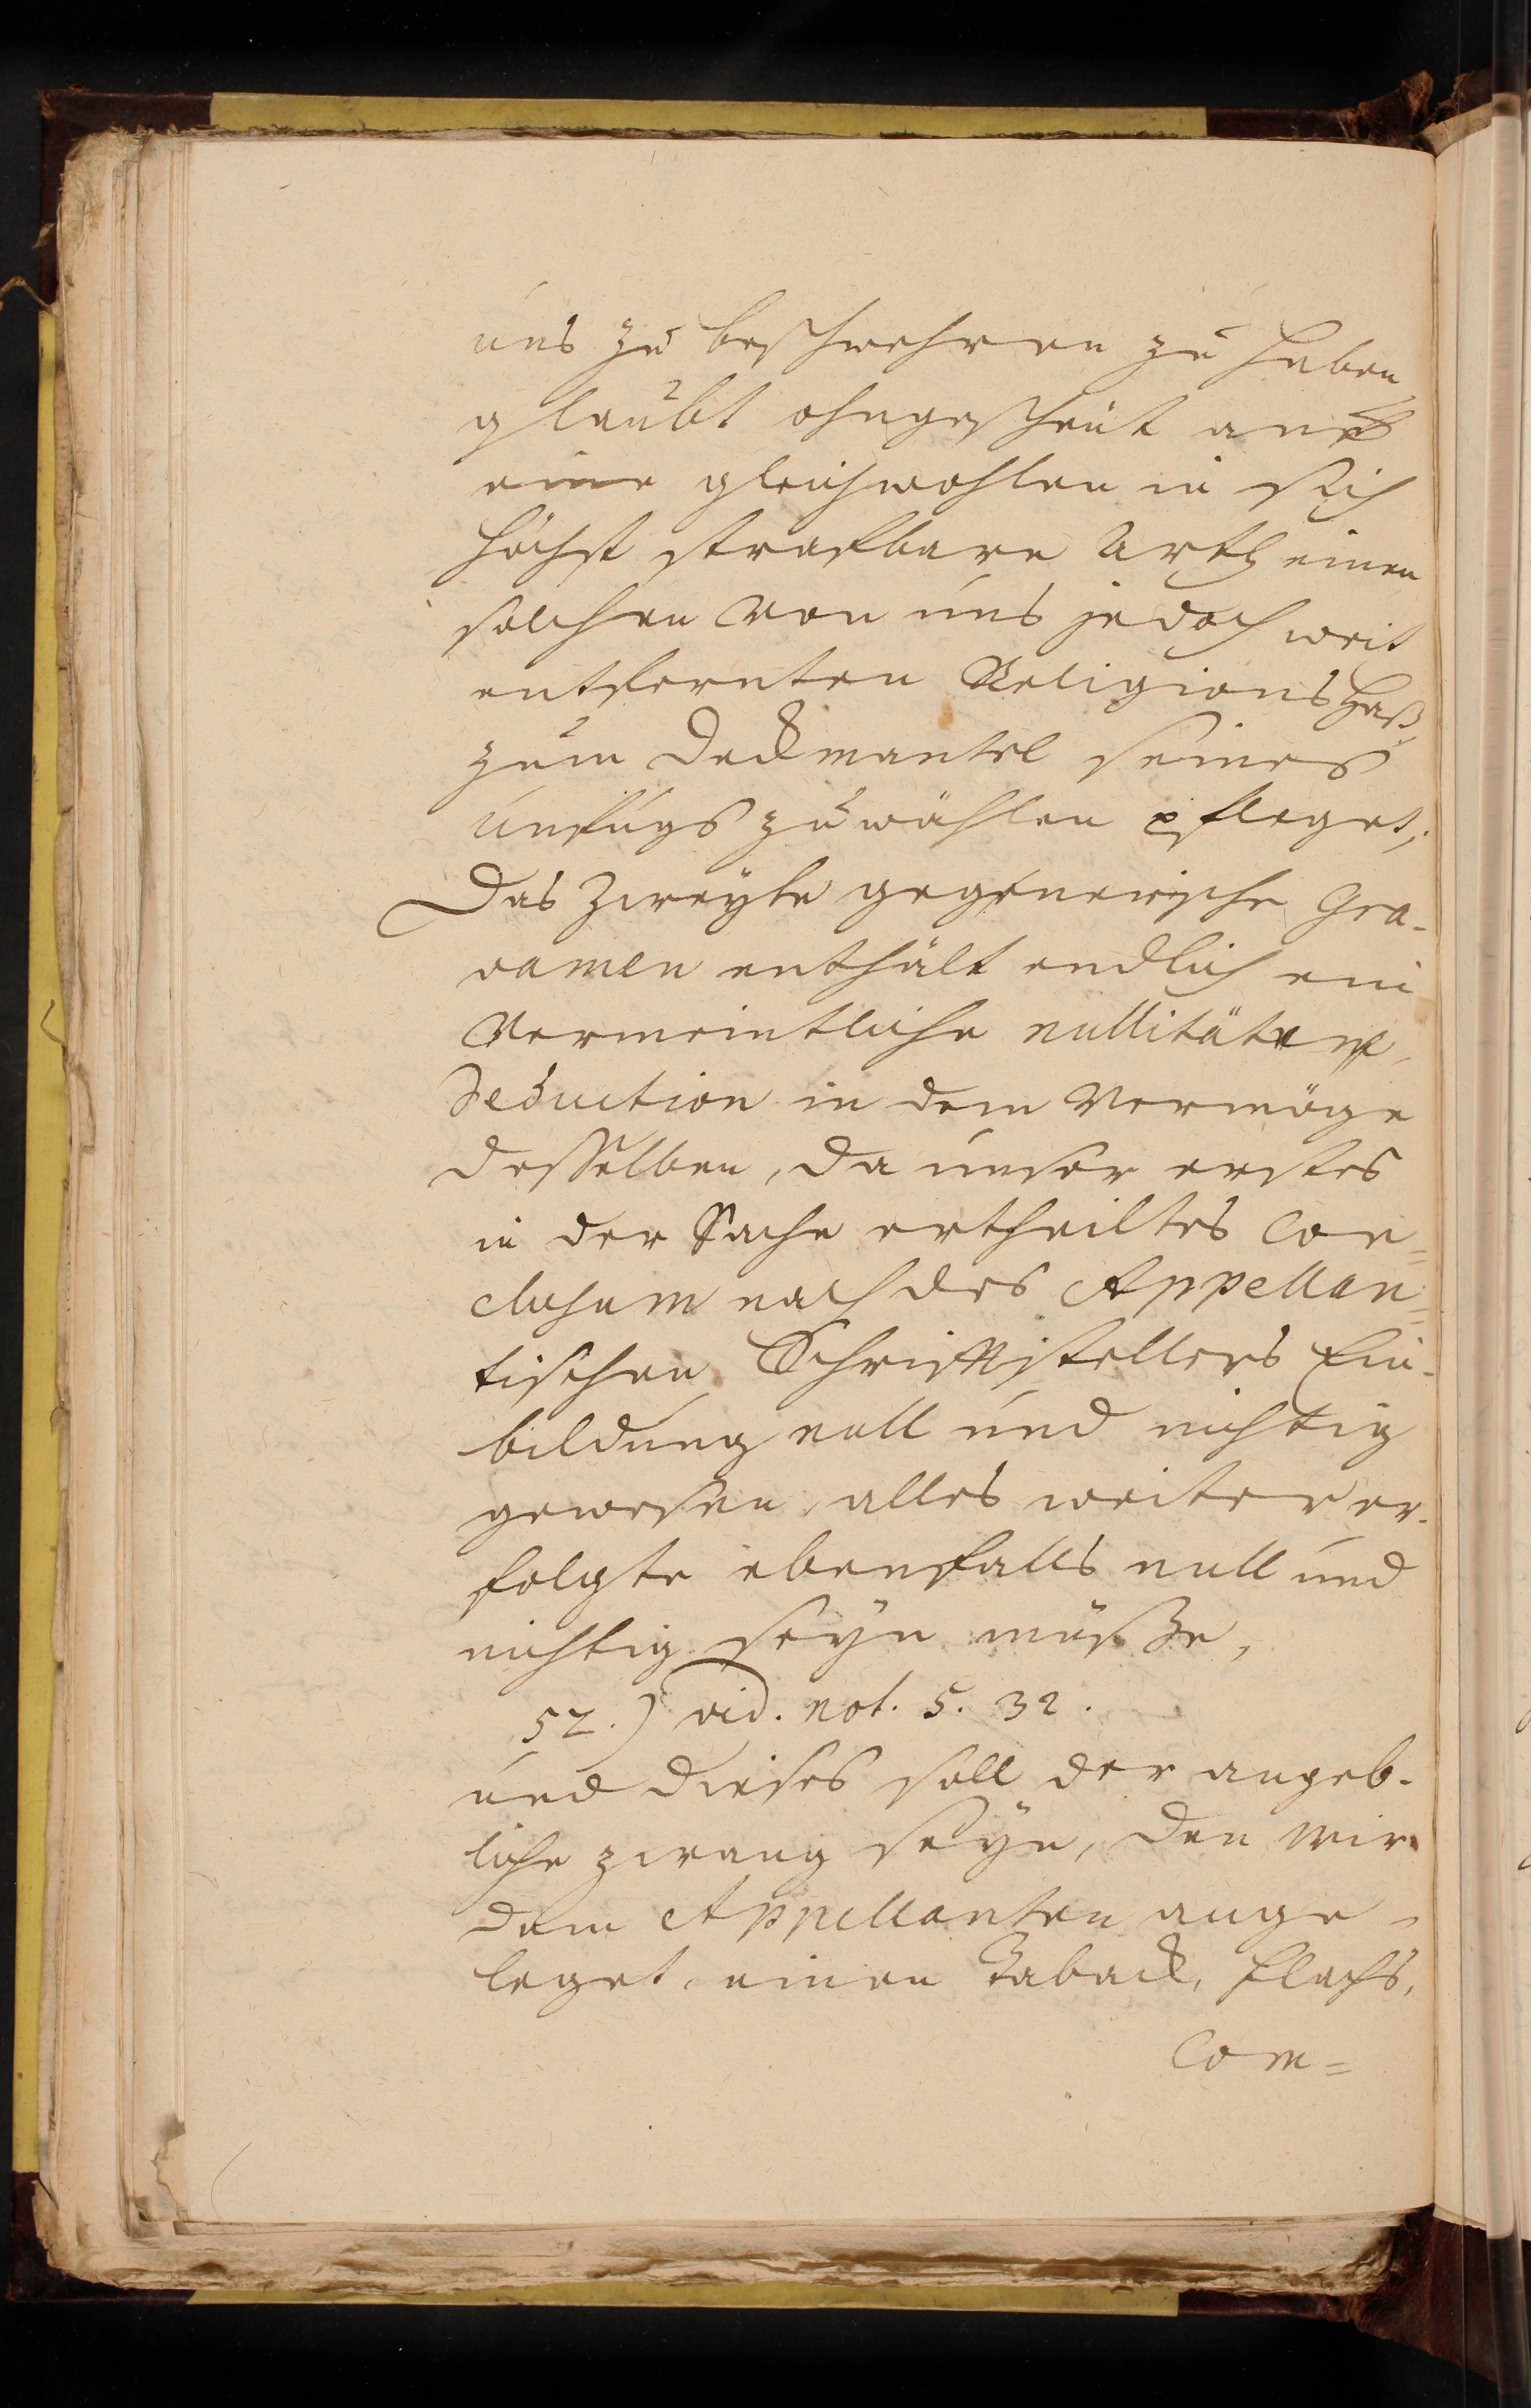 uns zu beschwehren zu haben
glaubt ohngescheut auf
eine gleichwohlen in sich
höchst strafbare Arth einen
solchen von uns jedoch weit
entfernten Religions Haß
zum Deckmantel seines
unfugs zu wählen pfleget;
Das Zweyte gegenerische Gra-
vamen enthält endlich ein
Vermeintliche nullitäten,
Deduction in dem Vermöge
desselben, da unser erstes
in der Sache ertheiltes Con=
clusum nach des Appellan=
tischen Schriftstellers Ein-
bildung null und nichtig
gewesen, alles weiter er-
folgte ebenfalls null und
nichtig seyn müße,
52.) vid. not. 5. 32.
und dieses soll der angeb-
liche zwang seyn, den wir
dem Appellanten ange-
leget, einen Taback, Flachs,
Com=